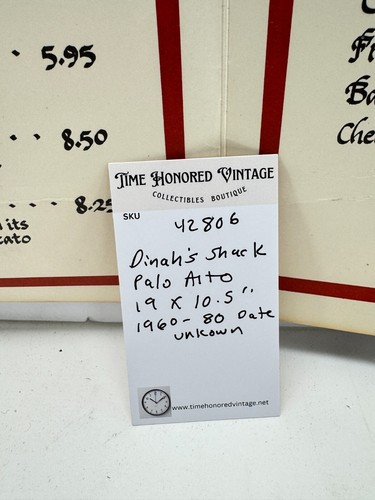 5.95
8.50
8.25
its
ato
Fi
Ba
Che
TIME HONORED VINTAGE
COLLECTIBLES BOUTIQUE
SKU
42806
Dinah's Shack
Palo Alto
19 x 10.5"
1960 - 80 Date
unkown
www.timehonoredvintage.net